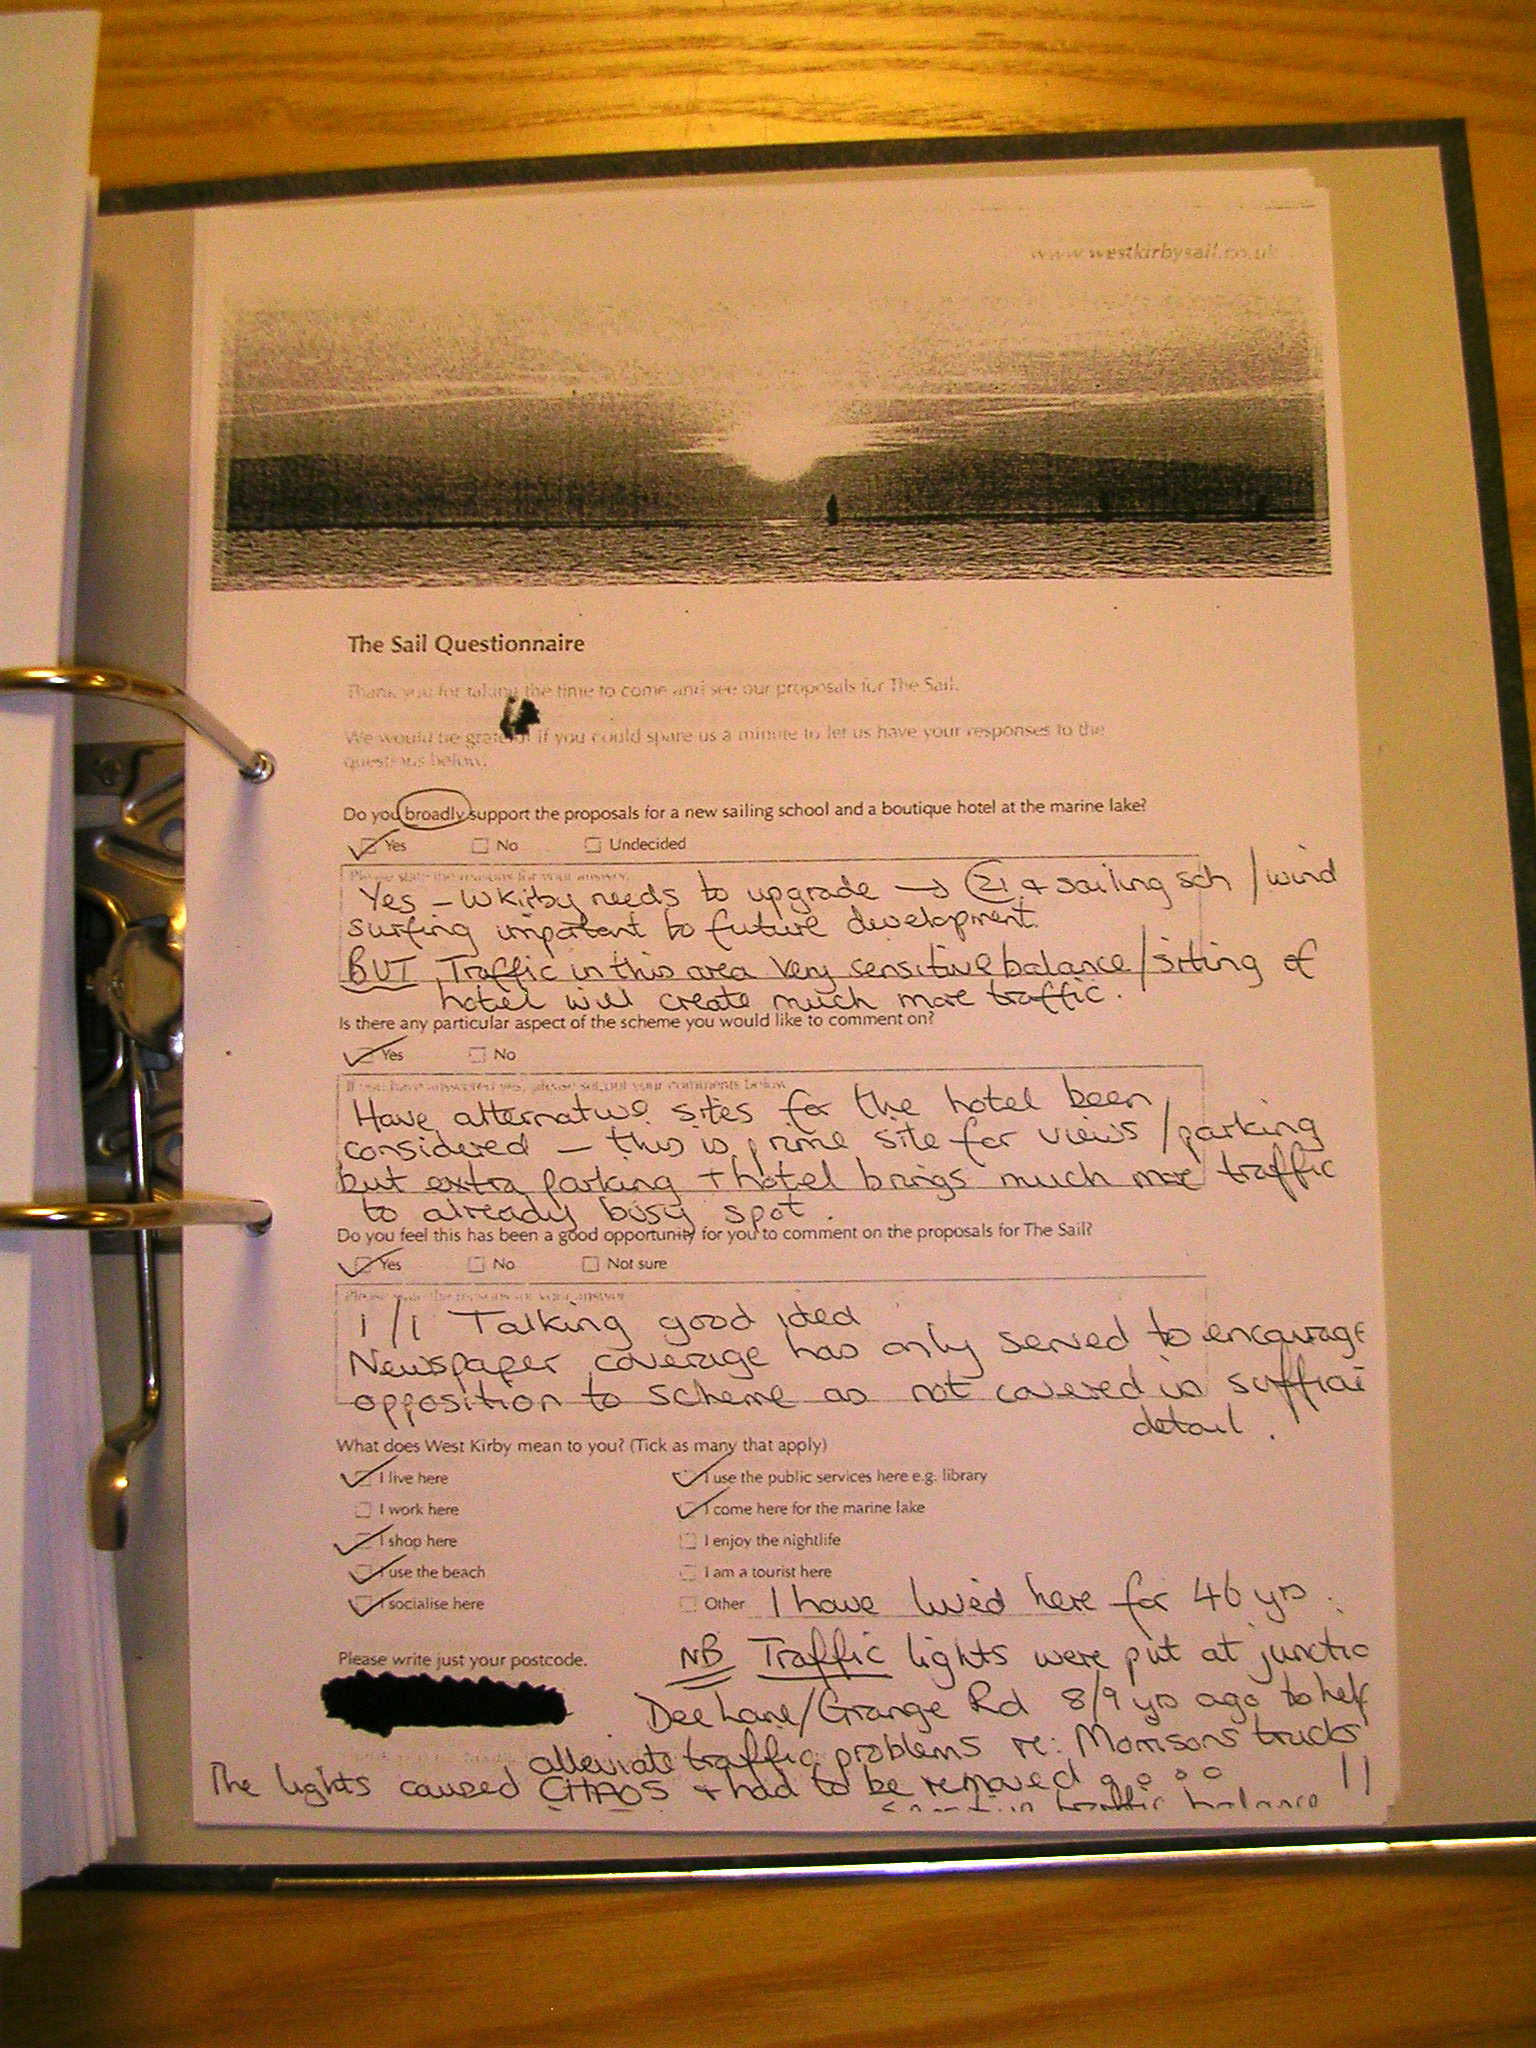 www.westkirbysail.co.uk
The Sail Questionnaire
Thank you for taking the time to come and see our proposals for The Sail.
We would be grateful if you could spare us a minute to let us have your responses to the
questions below.
Do you broadly support the proposals for a new sailing school and a boutique hotel at the marine lake?
Yes No Undecided
Please state the reasons for your answer.
Yes - W Kirby needs to upgrade → 21 + sailing sch / wind
surfing important to future development.
BUT Traffic in this area very sensitive balance / siting of
hotel will create much more traffic.
Is there any particular aspect of the scheme you would like to comment on?
Yes No
If you have answered yes, please set out your comments below
Have alternative sites for the hotel been
considered - this is prime site for views / parking
but extra parking + hotel brings much more traffic
to already busy spot.
Do you feel this has been a good opportunity for you to comment on the proposals for The Sail?
Yes No Not sure
Please state the reasons for your answer
1/1 Talking good idea
Newspaper coverage has only served to encourage
opposition to scheme as not covered in
detail.
What does West Kirby mean to you? (Tick as many that apply)
I live here I use the public services here e.g. library
I work here I come here for the marine lake
I shop here I enjoy the nightlife
I use the beach I am a tourist here
I socialise here Other I have lived here for 46 yrs.
Please write just your postcode.
NB Traffic lights were put at junctio
Dee Lane/Grange Rd 8/9 yrs ago to help
alleviate traffic problems re: Morrisons trucks
The lights caused CHAOS + had to be removed !!
traffic balance